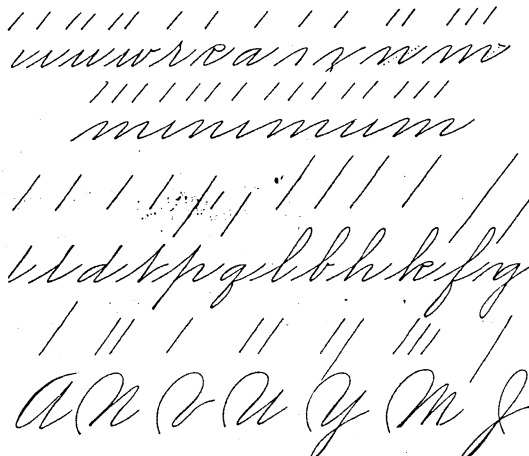 u w r e a n m
minimum
t d t p q l b h k f y
A N V U Y M J